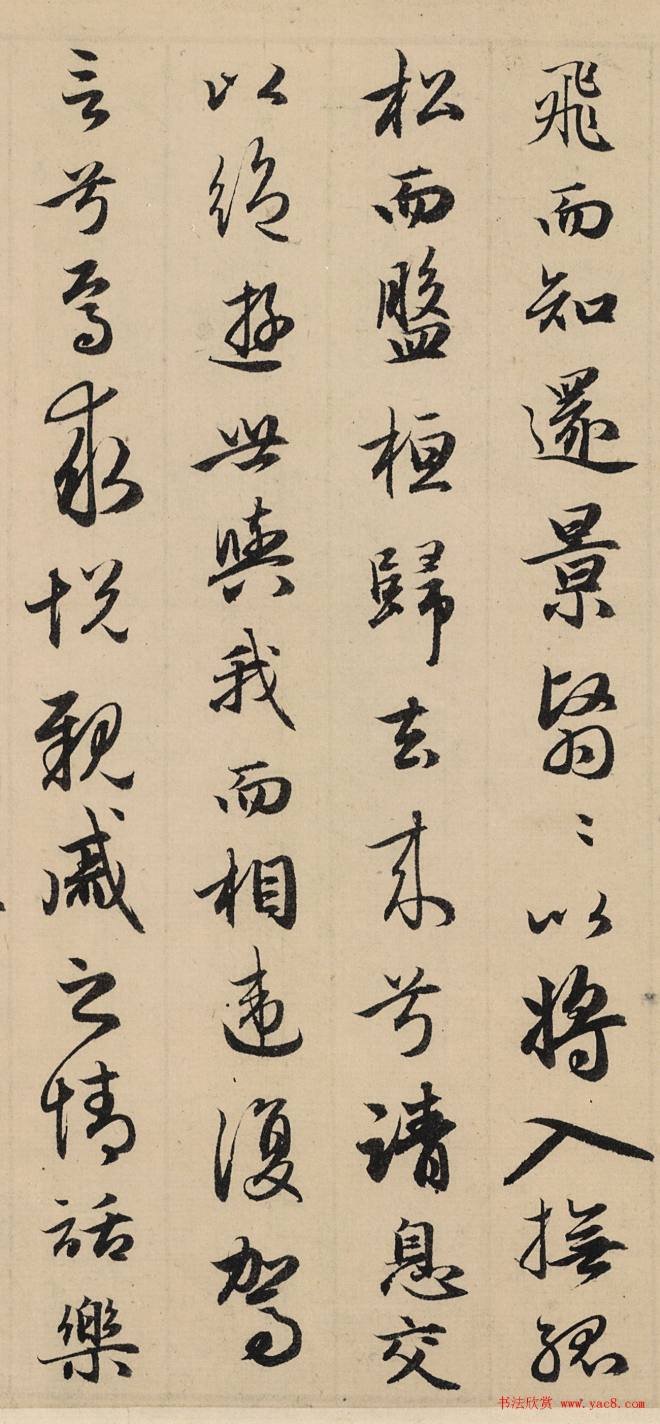 飛而知還景翳〻以將入撫孤
松而盤桓歸去来兮請息交
以絶遊世與我而相違復駕
言兮焉求悦親戚之情話樂
书法欣赏 www.yac8.com